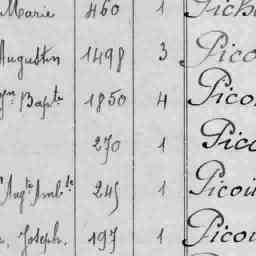 Marie 460 1
Augustin 1498 3 Pico
Bapte 1850 4 Pico
270 1 Pico
Augte Amb.se 245 1 Picoi
Joseph. 197 1 Picou